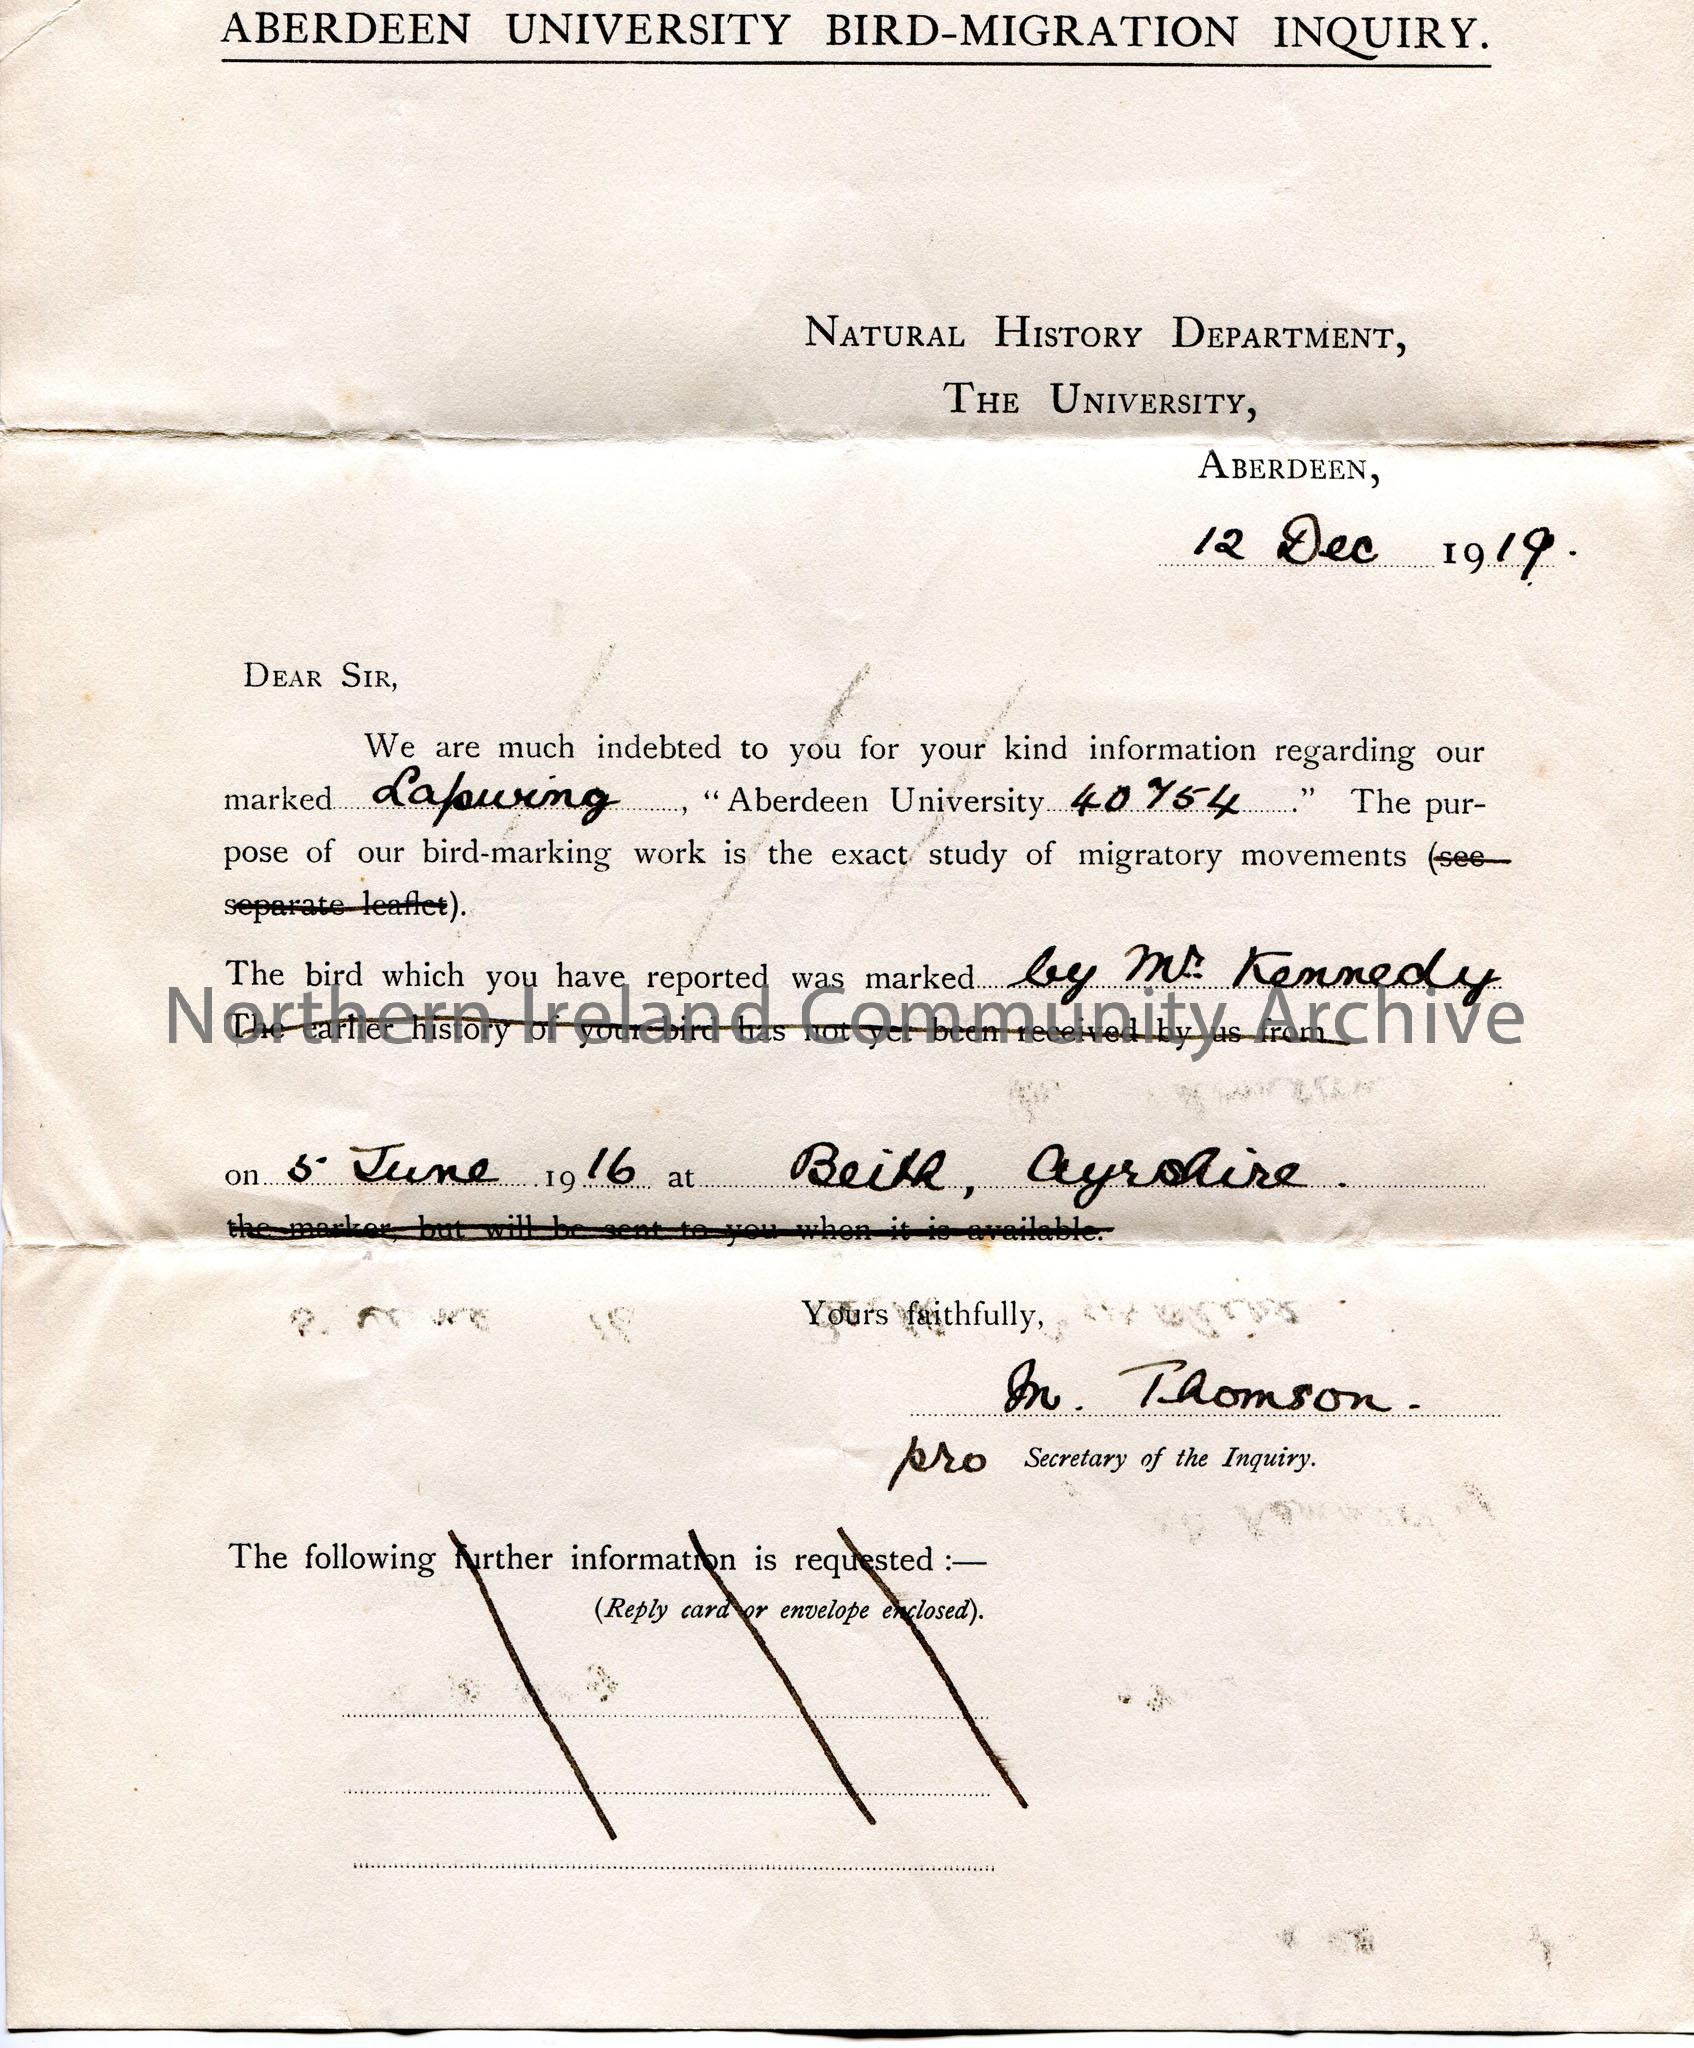 ABERDEEN UNIVERSITY BIRD-MIGRATION INQUIRY.
NATURAL HISTORY DEPARTMENT,
THE UNIVERSITY,
ABERDEEN,
12 Dec 1919.
DEAR SIR,
We are much indebted to you for your kind information regarding our
marked Lapwing, “Aberdeen University 40754.” The pur-
pose of our bird-marking work is the exact study of migratory movements (see
separate leaflet).
The bird which you have reported was marked by Mr. Kennedy
Northern Ireland Community Archive
The earlier history of your bird has not yet been received by us from
on 5 June 1916 at Beith, Ayrshire.
the marker, but will be sent to you when it is available.
Yours faithfully,
M. Thomson.
pro Secretary of the Inquiry.
The following further information is requested :—
(Reply card or envelope enclosed).